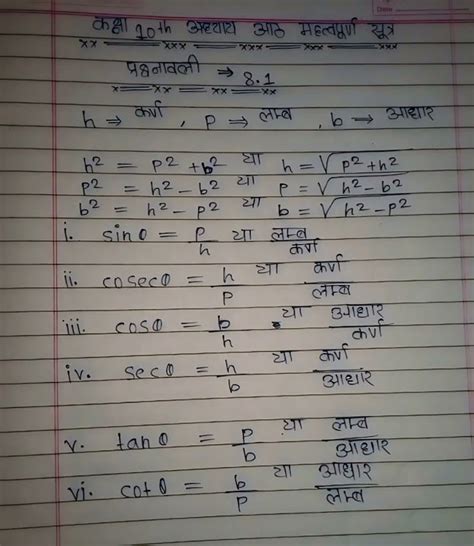 कक्षा 10th अध्याय आठ महत्वपूर्ण सूत्र
प्रश्नावली → 8.1
h → कर्ण , p → लम्ब , b → आधार
h² = p² + b² या h = √p² + h²
p² = h² - b² या p = √h² - b²
b² = h² - p² या b = √h² - p²
i. sinθ = p/h या लम्ब/कर्ण
ii. cosecθ = h/p या कर्ण/लम्ब
iii. cosθ = b/h या आधार/कर्ण
iv. secθ = h/b या कर्ण/आधार
v. tanθ = p/b या लम्ब/आधार
vi. cotθ = b/p या आधार/लम्ब